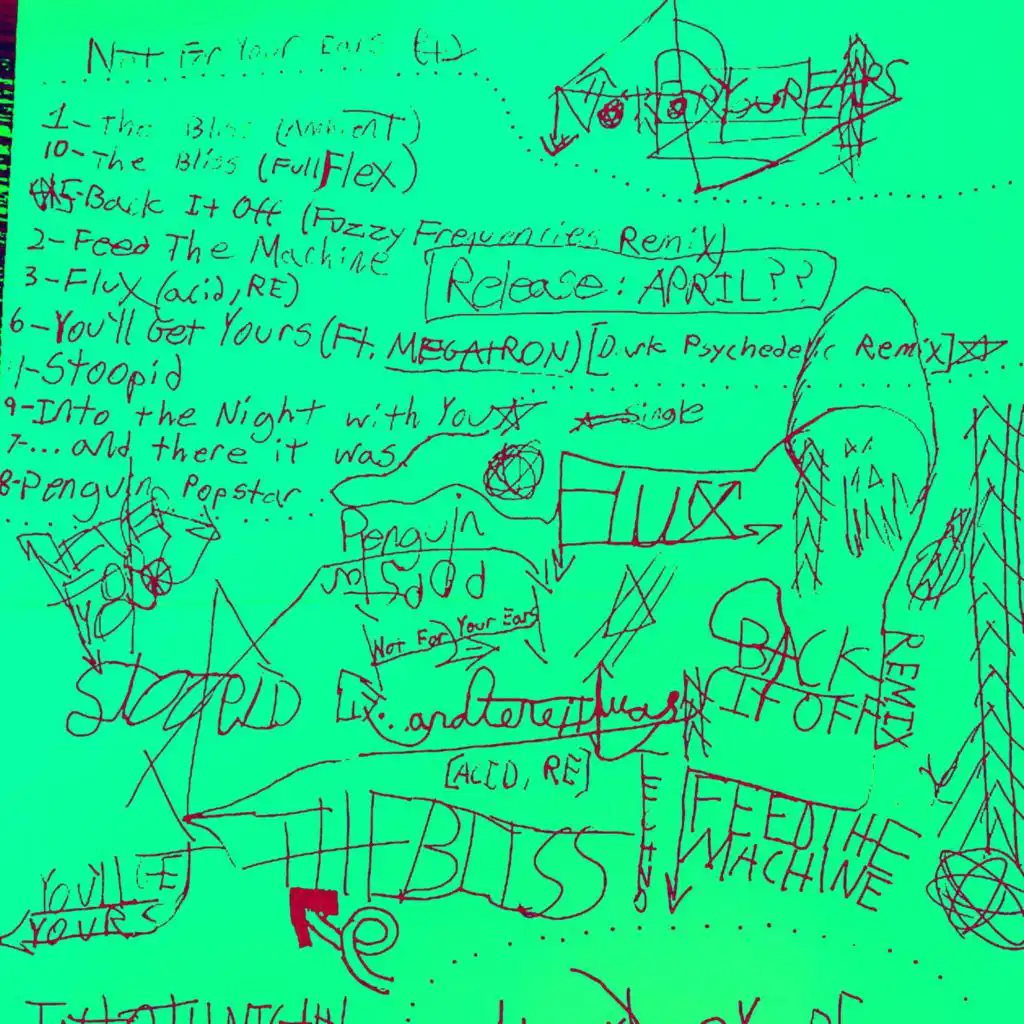 Not For Your Ears (+)
NOT FOR YOUR EARS
1-The Bliss (Ambient)
10-The Bliss (Full Flex)
5-Back It Off (Fuzzy Frequencies Remix)
2-Feed The Machine
Release: APRIL??
3-Flux (acid, RE)
6-You'll Get Yours (Ft. MEGATRON) [Dark Psychedelic Remix]
1-Stoopid
9-Into the Night with You
Single
7-... and there it was
8-Penguin Popstar
FLUX
Penguin
Not For Your Ears
BACK
IT OFF
REMIX
STOOPID
...andtereitwas
[ACID, RE]
THE BLISS
FEED THE
MACHINE
YOU'LL GE
YOURS